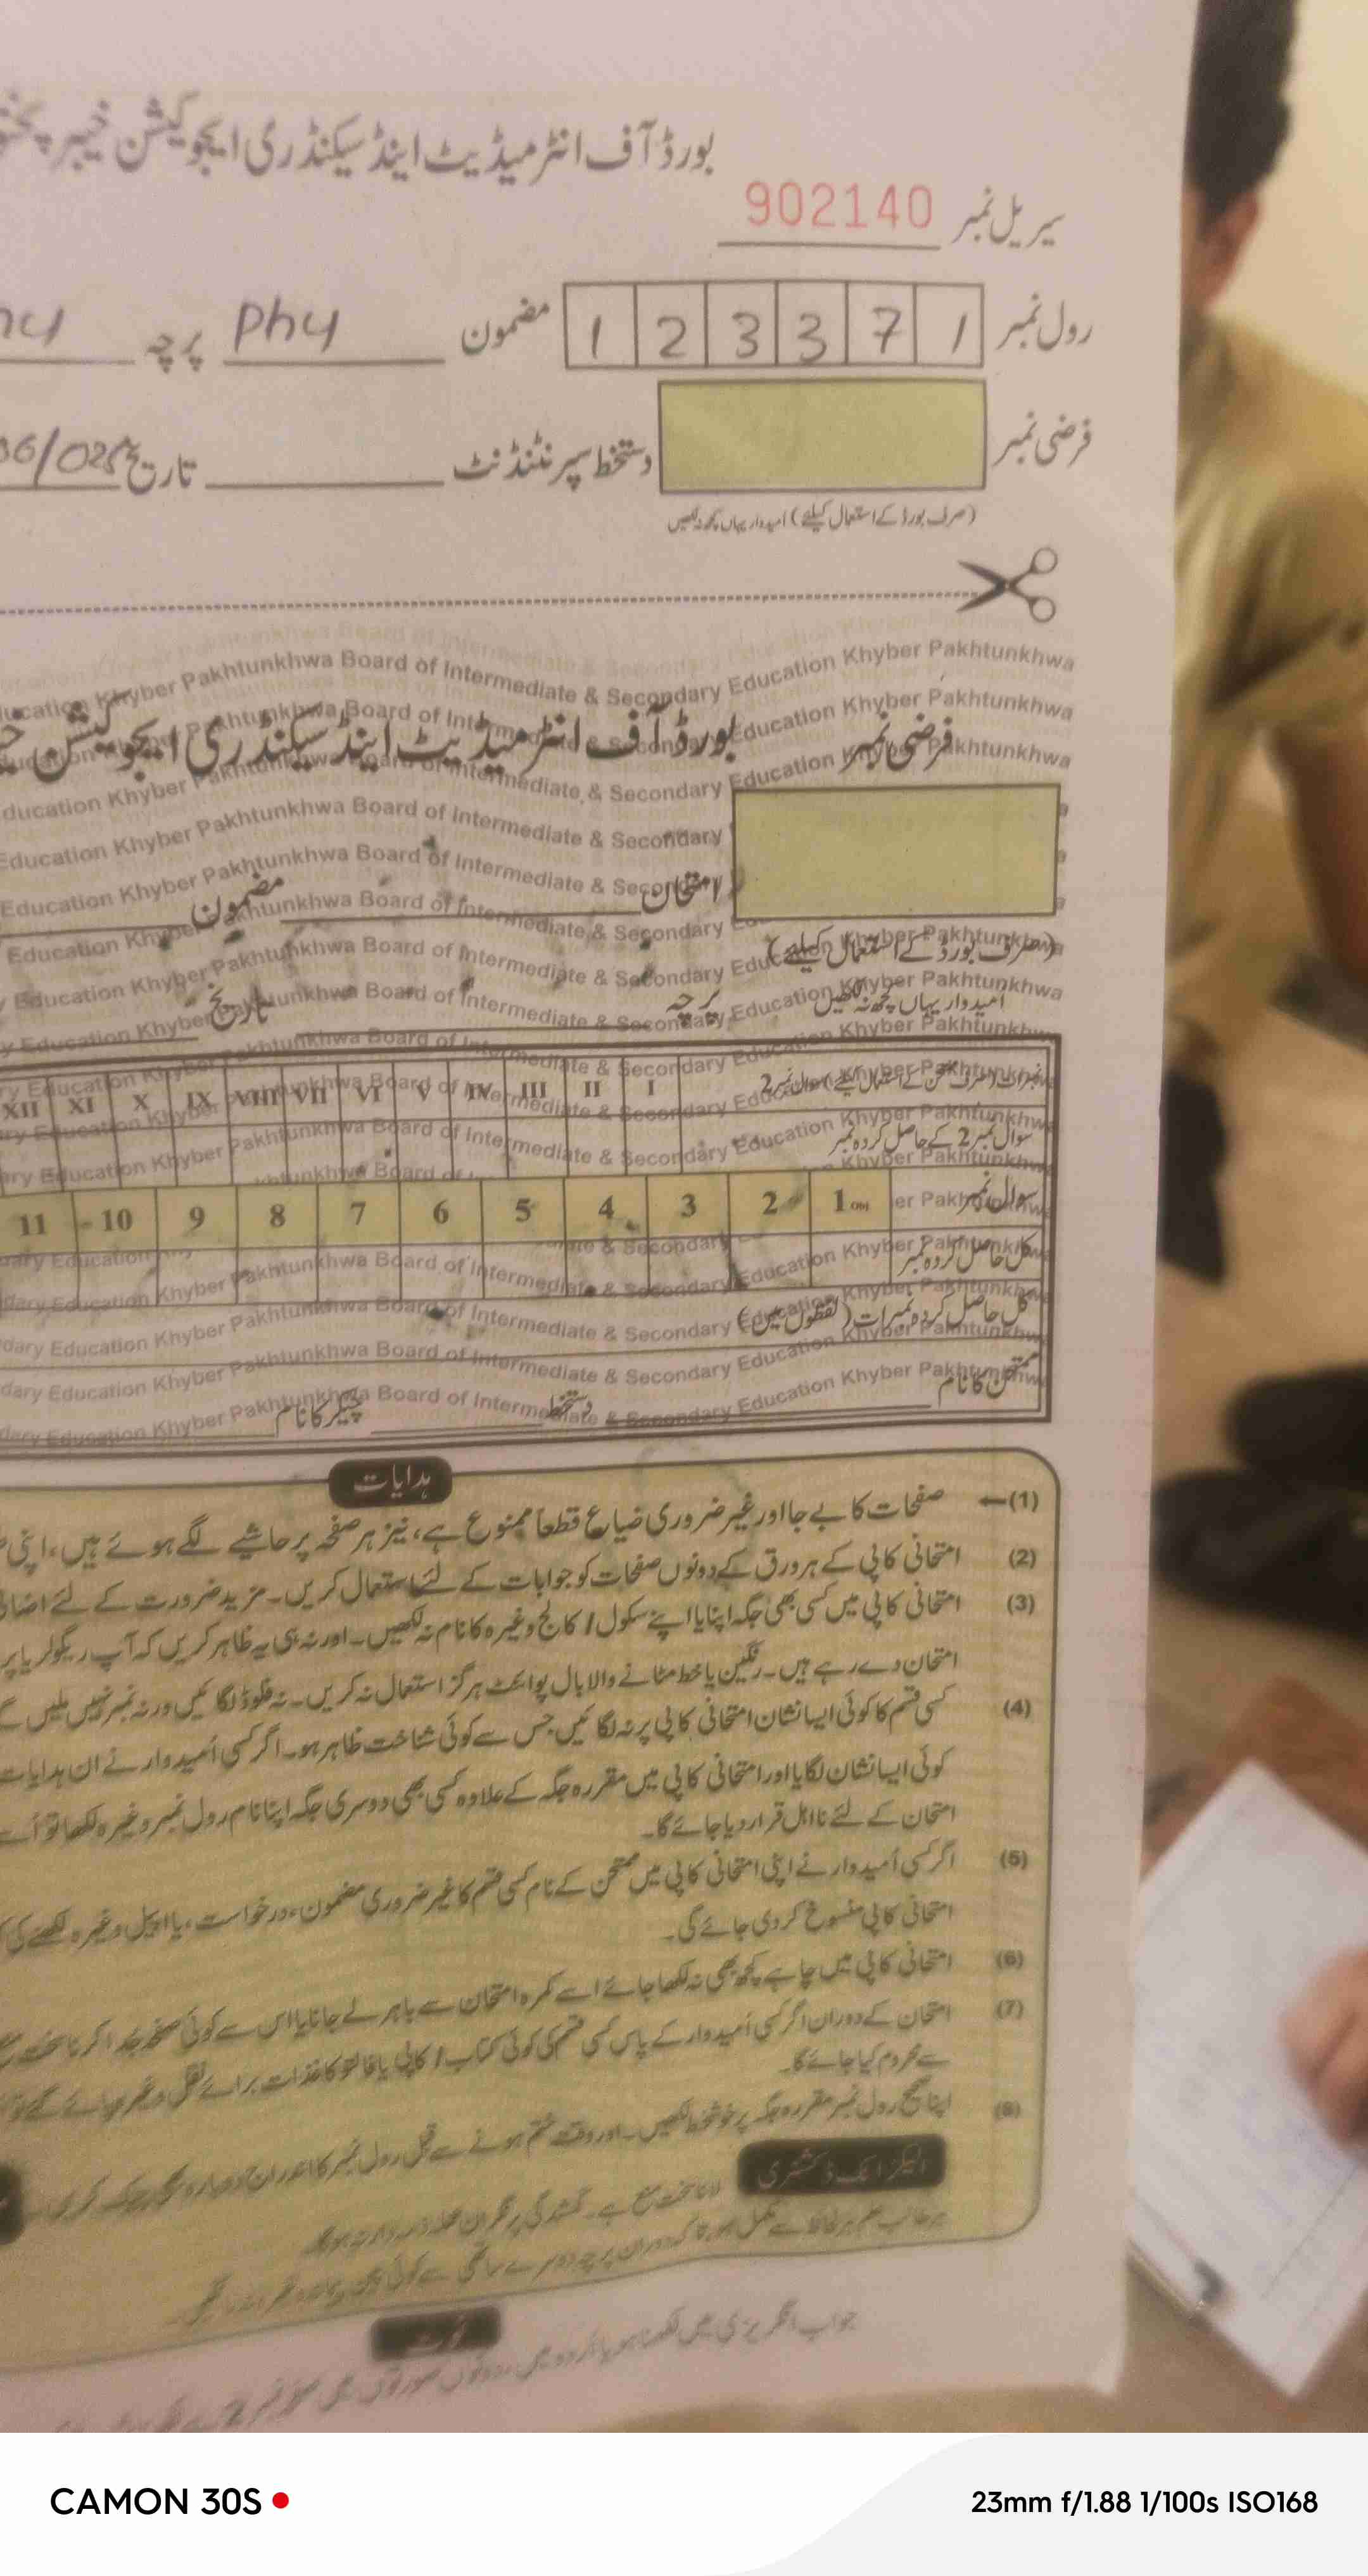 بورڈ آف انٹرمیڈیٹ اینڈ سیکنڈری ایجوکیشن خیبر
سیریل نمبر 902140
رول نمبر 1 2 3 3 7 1 مضمون Phy پرچہ
فرضی نمبر دستخط سپرنٹنڈنٹ تاریخ
(صرف بورڈ کے استعمال کیلئے) امیدوار یہاں کچھ نہ لکھیں
Khyber Pakhtunkhwa Board of Intermediate & Secondary Education Khyber Pakhtunkhwa
فرضی نمبر
بورڈ آف انٹرمیڈیٹ اینڈ سیکنڈری ایجوکیشن
امتحان مضمون
(صرف بورڈ کے استعمال کیلئے)
امیدوار یہاں کچھ نہ لکھیں
پرچہ تاریخ
I II III IV V VI VII VIII IX X XI XII
سوال نمبر 2 کے حاصل کردہ نمبر
سوال نمبر 1 2 3 4 5 6 7 8 9 10 11
کل حاصل کردہ نمبر
کل حاصل کردہ نمبرات (لفظوں میں)
ممتحن کا نام دستخط چیکر کا نام
ہدایات
(1) صفحات کا بے جا اور غیر ضروری ضیاع قطعاً ممنوع ہے، نیز ہر صفحہ پر حاشیے لگے ہوئے ہیں، اپنی
(2) امتحانی کاپی کے ہر ورق کے دونوں صفحات کو جوابات کے لئے استعمال کریں۔ مزید ضرورت کے لئے
(3) امتحانی کاپی میں کسی بھی جگہ اپنا یا اپنے سکول / کالج وغیرہ کا نام نہ لکھیں۔ اور نہ ہی یہ ظاہر کریں کہ آپ ریگولر یا
امتحان دے رہے ہیں۔ رنگین یا خط مٹانے والا بال پوائنٹ ہرگز استعمال نہ کریں۔ نہ فلوڈ لگائیں ورنہ نمبر نہیں ملیں گے
(4) کسی قسم کا کوئی ایسا نشان امتحانی کاپی پر نہ لگائیں جس سے کوئی شناخت ظاہر ہو۔ اگر کسی اُمیدوار نے ان ہدایات
کوئی ایسا نشان لگایا اور امتحانی کاپی میں مقررہ جگہ کے علاوہ کسی بھی دوسری جگہ اپنا نام رول نمبر وغیرہ لکھا تو اُسے
امتحان کے لئے نااہل قرار دیا جائے گا۔
(5) اگر کسی اُمیدوار نے اپنی امتحانی کاپی میں ممتحن کے نام کسی قسم کا غیر ضروری مضمون، درخواست، یا اپیل وغیرہ لکھنے کی
امتحانی کاپی منسوخ کر دی جائے گی۔
(6) امتحانی کاپی میں چاہے کچھ بھی نہ لکھا جائے اسے کمرہ امتحان سے باہر لے جانا یا اس سے کوئی صفحہ جدا کرنا سخت
(7) امتحان کے دوران اگر کسی اُمیدوار کے پاس کسی قسم کی کوئی کتاب / کاپی یا فالتو کاغذات برائے نقل وغیرہ پائے گئے تو
سے محروم کیا جائے گا۔
(8) اپنا صحیح رول نمبر مقررہ جگہ پر خوشخط لکھیں۔ اور وقت ختم ہونے سے قبل رول نمبر کا اندراج دوبارہ
الیکٹرانک ڈکشنری لانا سخت منع ہے۔
نوٹ
جواب انگریزی میں لکھنا ہو یا اردو میں، دونوں صورتوں میں
CAMON 30S
23mm f/1.88 1/100s ISO168